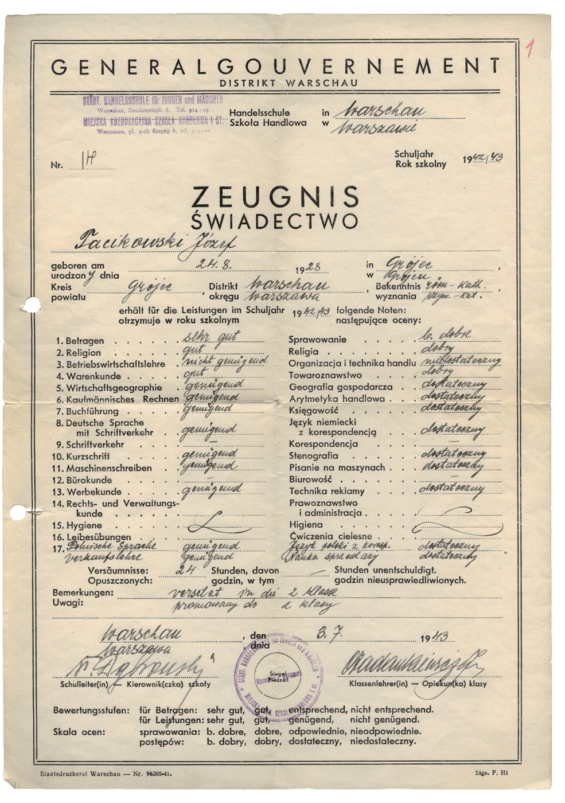 1
GENERALGOUVERNEMENT
DISTRIKT WARSCHAU
STÄDT. HANDELSSCHULE für JUNGEN und MÄDCHEN
Warschau,
MIEJSKA KOEDUKACYJNA SZKOŁA HANDLOWA I ST.
Warszawa, pl.
Handelsschule in Warschau
Szkoła Handlowa w Warszawie
Nr. 14
Schuljahr
Rok szkolny 1942/43
ZEUGNIS
ŚWIADECTWO
Pacikowski Józef
geboren am 24.8. 1928 in Grójec,
urodzony dnia w Grójcu
Kreis grójec, Distrikt Warschau Bekenntnis röm-kath.
powiatu okręgu Warszawa wyznania rzym.-kat.
erhält für die Leistungen im Schuljahr 1942/43 folgende Noten:
otrzymuje w roku szkolnym następujące oceny:
1. Betragen sehr gut Sprawowanie b. dobre
2. Religion gut Religia dobry
3. Betriebswirtschaftslehre nicht genügend Organizacja i technika handlu niedostateczny
4. Warenkunde gut Towaroznawstwo dobry
5. Wirtschaftsgeographie genügend Geografia gospodarcza dostateczny
6. Kaufmännisches Rechnen genügend Arytmetyka handlowa dostateczny
7. Buchführung genügend Księgowość dostateczny
8. Deutsche Sprache Język niemiecki
mit Schriftverkehr genügend z korespondencją dostateczny
9. Schriftverkehr — Korespondencja —
10. Kurzschrift genügend Stenografia dostateczny
11. Maschinenschreiben genügend Pisanie na maszynach dostateczny
12. Bürokunde — Biurowość —
13. Werbekunde genügend Technika reklamy dostateczny
14. Rechts- und Verwaltungs- Prawoznawstwo
kunde i administracja
15. Hygiene Higiena
16. Leibesübungen Ćwiczenia cielesne
17. Polnische Sprache genügend Język polski z koresp. dostateczny
Verkaufslehre genügend Nauka sprzedaży dostateczny
Versäumnisse: 24 Stunden, davon Stunden unentschuldigt.
Opuszczonych: godzin, w tym godzin nieusprawiedliwionych.
Bemerkungen: versetzt in die 2 klasse
Uwagi: promowany do 2 klasy
Warschau, den 3.7. 1943
Warszawa dnia
Siegel
Pieczęć
Schulleiter(in) — Kierownik(czka) szkoły Klassenlehrer(in) — Opiekun(ka) klasy
Bewertungsstufen: für Betragen: sehr gut, gut, entsprechend, nicht entsprechend.
für Leistungen: sehr gut, gut, genügend, nicht genügend.
Skala ocen: sprawowania: b. dobre, dobre, odpowiednie, nieodpowiednie.
postępów: b. dobry, dobry, dostateczny, niedostateczny.
Staatsdruckerei Warschau — Nr. 96305-41. Sign. P. H1